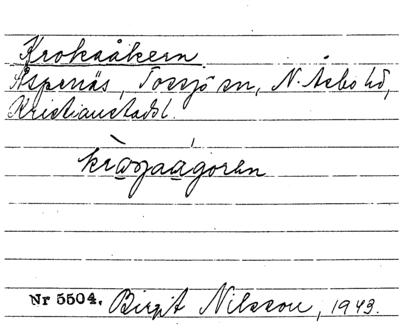 Krokaåkern
Aspenäs, Tossjö sn, N. Åsbo hd,
Kristianstads l.
Nr 5504. Birgit Nilsson, 1943.